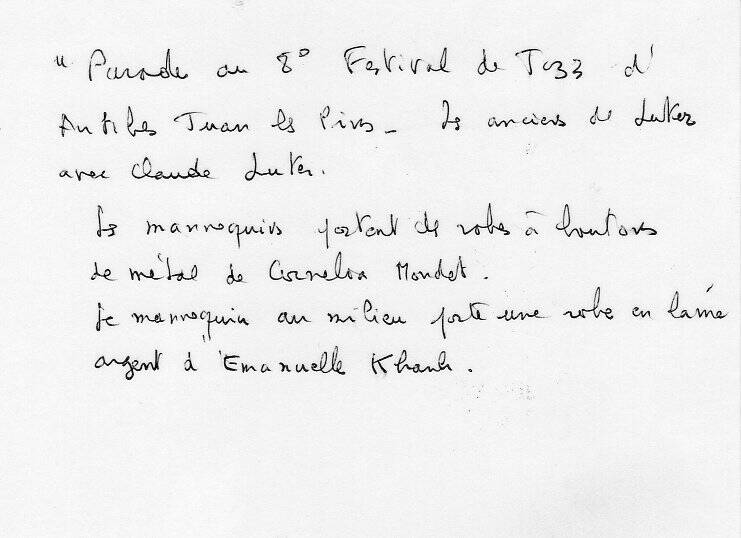 " Parade au 8° Festival de Jazz d'
Antibes Juan les Pins - Les anciens de Luter
avec Claude Luter.
Les mannequins portent des robes à boutons
de métal de Cornelia Mondet.
Le mannequin au milieu porte une robe en lamé
argent d'Emanuelle Khanh.